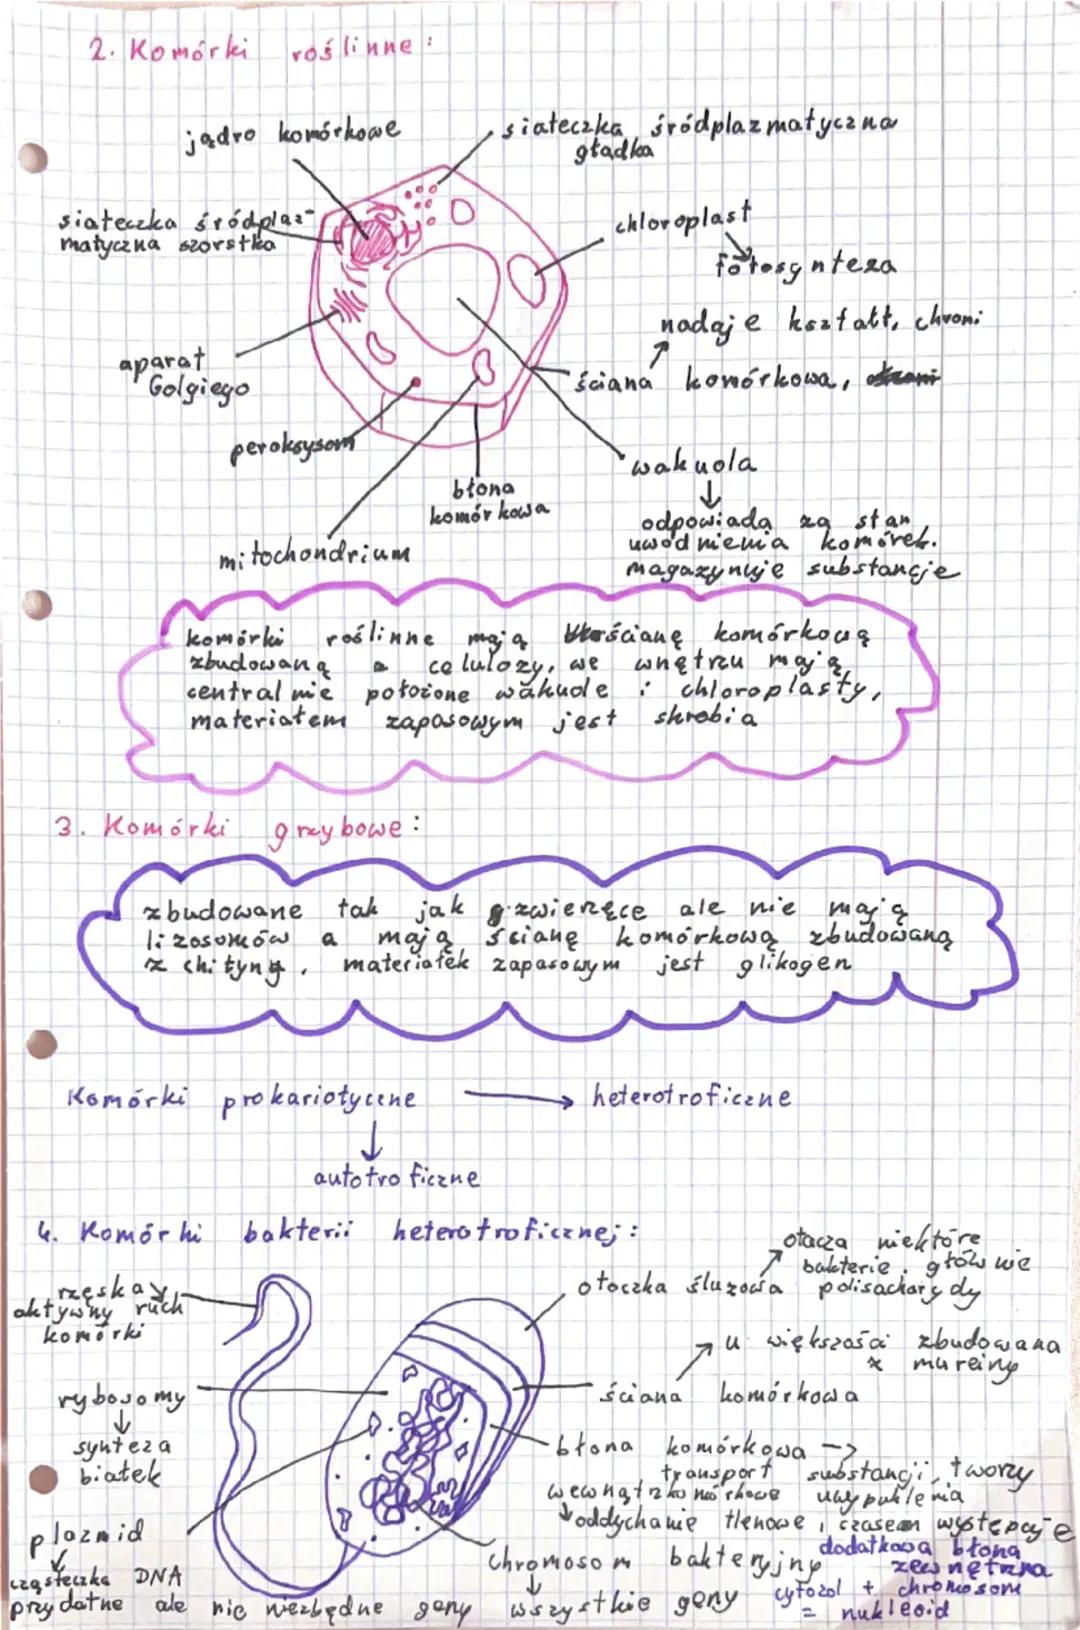 2. Komórki roślinne:
jądro komórkowe
siateczka śródplazmatyczna
gładka
siateczka śródplaz-
matyczna szorstka
chloroplast
fotosynteza
nadaje kształt, chroni
aparat
Golgiego
ściana komórkowa,
peroksysom
wakuola
błona
komórkowa
odpowiada za stan
uwodnienia komórek.
magazynuje substancje
mitochondrium
komórki roślinne mają ścianę komórkową
zbudowaną z celulozy, we wnętrzu mają
centralnie położone wakuole i chloroplasty,
materiałem zapasowym jest skrobia
3. Komórki grzybowe:
zbudowane tak jak zwierzęce ale nie mają
lizosomów a mają ścianę komórkową zbudowaną
z chityny, materiałek zapasowym jest glikogen
Komórki prokariotyczne → heterotroficzne
↓
autotroficzne
4. Komórki bakterii heterotroficznej:
otacza niektóre
bakterie, głównie
polisacharydy
otoczka śluzowa
rzęska
aktywny ruch
komórki
u większości zbudowana
z mureiny
ściana komórkowa
rybosomy
↓
synteza
białek
błona komórkowa →
transport substancji, tworzy
wewnątrzkomórkowe uwypuklenia
oddychanie tlenowe, czasem występuje
dodatkowa błona
zewnętrzna
plazmid
cząsteczka DNA
przydatne ale nie niezbędne geny
chromosom bakteryjny
↓
wszystkie geny
cytozol + chromosom
= nukleoid